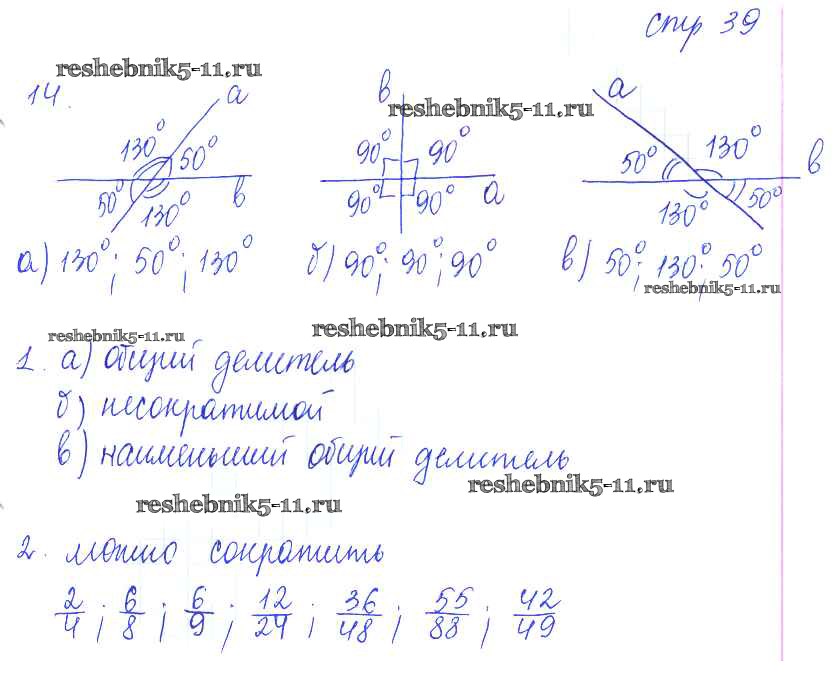 стр 39
reshebnik5-11.ru
14.
a
130° 50°
50° 130°
в
в
reshebnik5-11.ru
90° 90°
90° 90°
a
a
50° 130°
в
130° 50°
а) 130°; 50°; 130°
б) 90°; 90°; 90°
в) 50°; 130°; 50°
reshebnik5-11.ru
reshebnik5-11.ru
reshebnik5-11.ru
1. а) общий делитель
б) несократимой
в) наименьший общий делитель
reshebnik5-11.ru
reshebnik5-11.ru
2. можно сократить
2/4; 6/8; 6/9; 12/24; 36/48; 55/88; 42/49